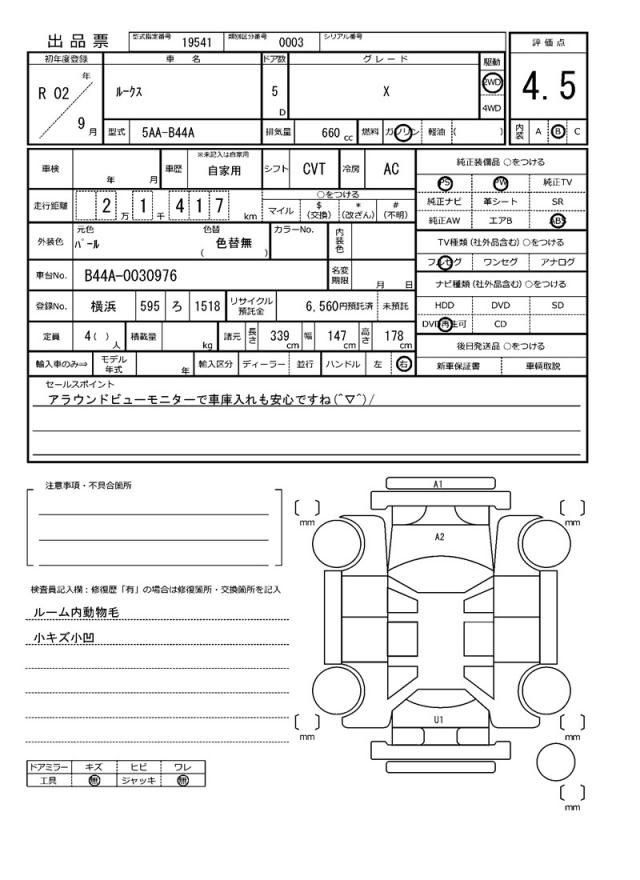 出品票 型式指定番号 19541 類別区分番号 0003 シリアル番号
初年度登録 車名 ドア数 グレード 駆動 評価点
R 02 年 9 月 ルークス 5 D X 2WD 4WD 4.5
型式 5AA-B44A 排気量 660 cc 燃料 ガソリン 軽油 ( ) 内装 A B C
車検 年 月 車歴 ※未記入は自家用 自家用 シフト CVT 冷房 AC
走行距離 2 万 1 千 4 1 7 km ○をつける
マイル $(交換) *(改ざん) #(不明)
外装色 元色 パール 色替 色替無 ( ) カラーNo. 内装色
車台No. B44A-0030976 名変期限 月 日
登録No. 横浜 595 ろ 1518 リサイクル預託金 6,560円預託済 未預託
定員 4( ) 人 積載量 kg 諸元 長さ 339 cm 幅 147 cm 高さ 178 cm
輸入車のみ⇒ モデル年式 年 輸入区分 ディーラー 並行 ハンドル 左 右
純正装備品 ○をつける
PS PW 純正TV
純正ナビ 革シート SR
純正AW エアB ABS
TV種類(社外品含む) ○をつける
フルセグ ワンセグ アナログ
ナビ種類(社外品含む) ○をつける
HDD DVD SD
DVD再生可 CD
後日発送品 ○をつける
新車保証書 車輌取説
セールスポイント
アラウンドビューモニターで車庫入れも安心ですね(^▽^)/
注意事項・不具合箇所
検査員記入欄:修復歴「有」の場合は修復箇所・交換箇所を記入
ルーム内動物毛
小キズ小凹
A1
A2
U1
mm
mm
mm
mm
mm
ドアミラー キズ ヒビ ワレ
工具 無 ジャッキ 無